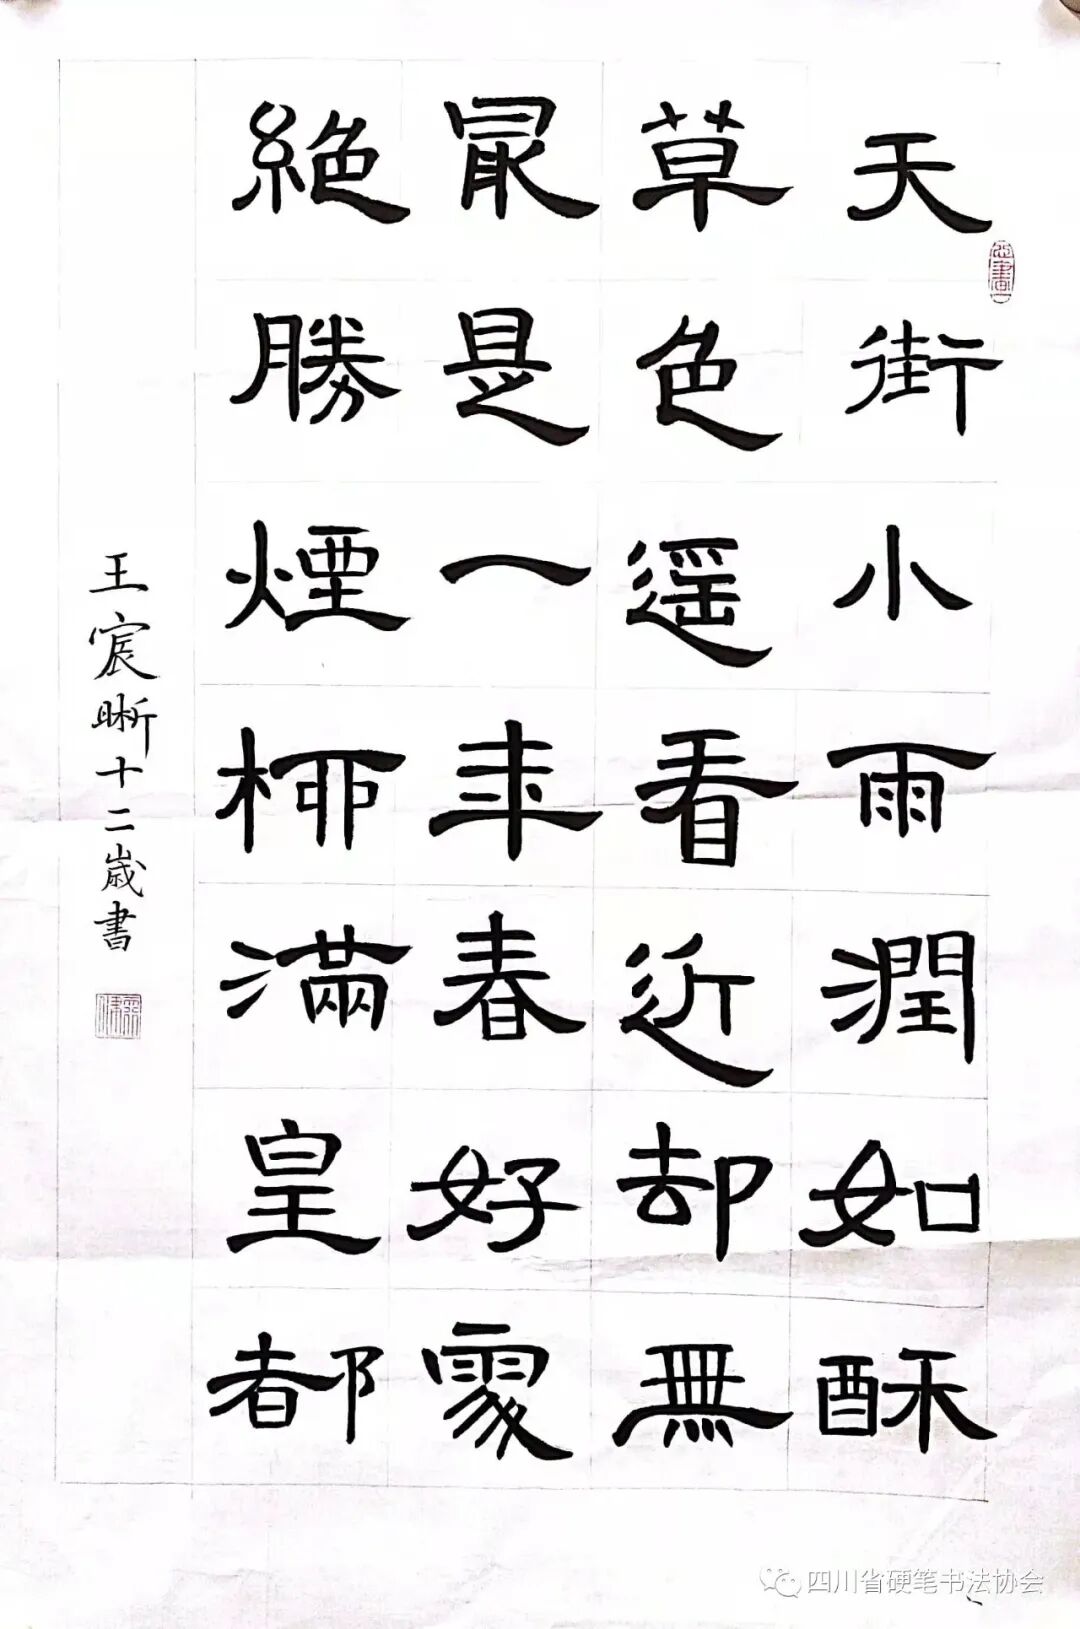 天街小雨潤如酥
草色遥看近却無
冣是一年春好處
絶勝煙柳滿皇都
王宸晰十二歲書
四川省硬笔书法协会